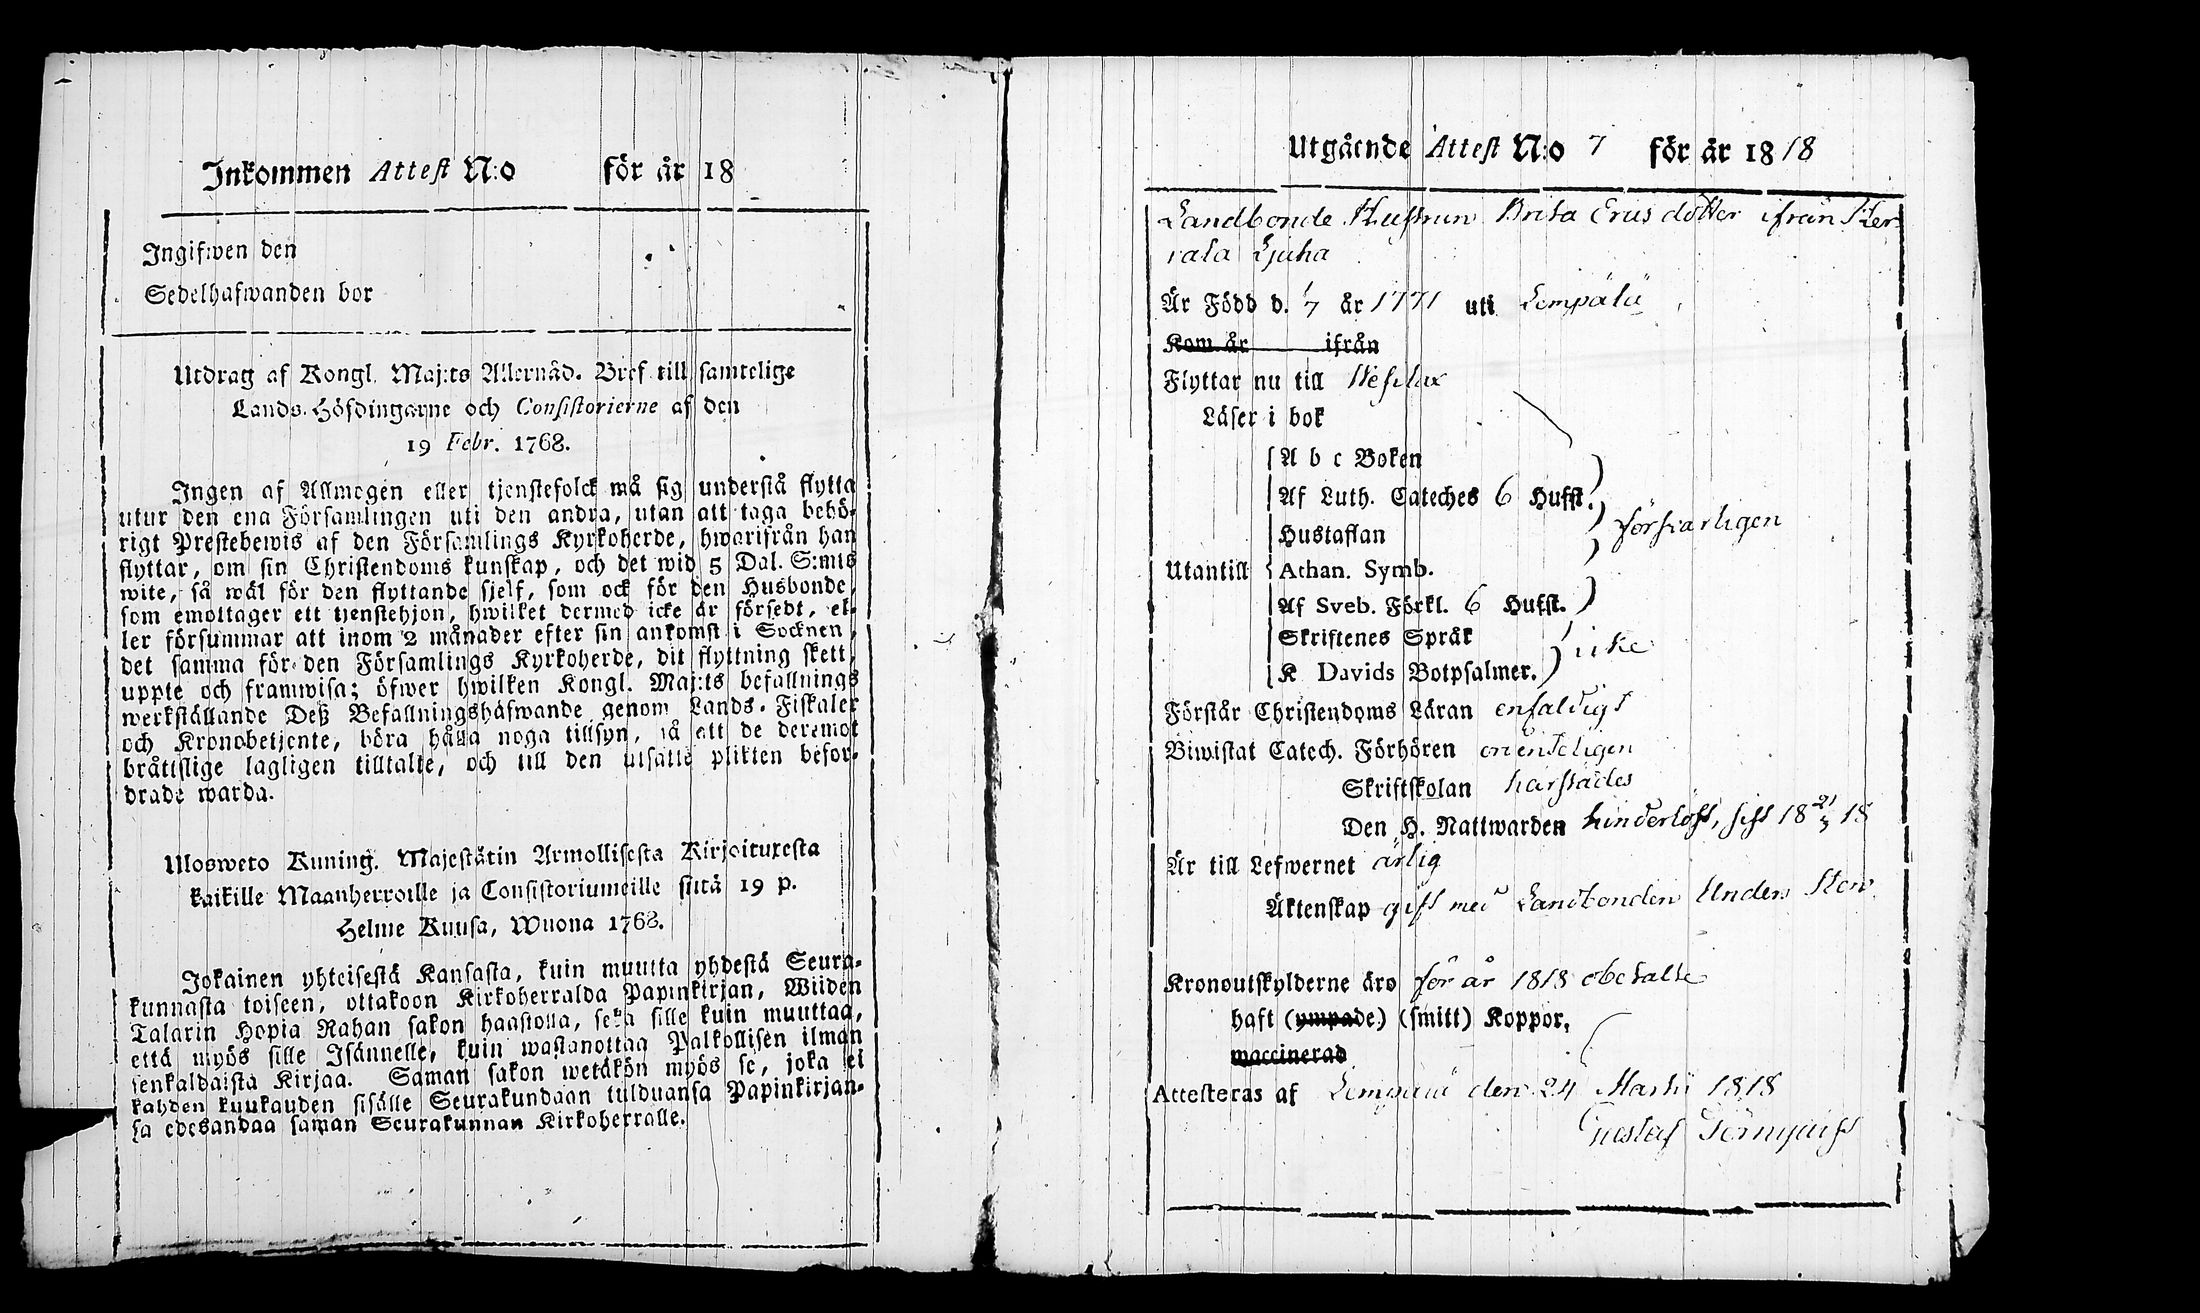 Inkommen Attest N:o för år 18
Ingifwen den
Sedelhafwanden bor
Utdrag af Kongl. Maj:ts Allernåd. Bref till samtelige
Lands-Höfdingarne och Consistorierne af den
19 Febr. 1768.
Ingen af Allmogen eller tjenstefolck må sig understå flytta
utur den ena Församlingen uti den andra, utan att taga behö-
rigt Prestebewis af den Församlings Kyrkoherde, hwarifrån han
flyttar, om sin Christendoms kunskap, och det wid 5 Dal. S:mts
wite, så wäl för den flyttande sjelf, som ock för den Husbonde,
som emottager ett tjenstehjon, hwilket dermed icke är försedt, el-
ler försummar att inom 2 månader efter sin ankomst i Socknen,
det samma för den Församlings Kyrkoherde, dit flyttning skett,
uppte och framwisa; öfwer hwilken Kongl. Maj:ts befallnings
werkställande Deß Befallningshäfwande genom Lands-Fiskaler
och Kronobetjente, böra hålla noga tillsyn, så att de deremot
bråttslige lagligen tilltalte, och till den utsatte plikten befor-
drade warda.
Ulosweto Kuning. Majestätin Armollisesta Kirjoituxesta
kaikille Maanherroille ja Consistoriumeille siitä 19 p.
Helme Kuusa, Wuona 1768.
Jokainen yhteisestä Kansasta, kuin muutta yhdestä Seura-
kunnasta toiseen, ottakoon Kirkoherralda Papinkirjan, Wiiden
Talarin Hopia Rahan sakon haastolla, sekä sille kuin muuttaa,
että myös sille Isännelle, kuin wastanottaa Palkollisen ilman
senkaldaista Kirjaa. Saman sakon wetäkön myös se, joka ei
kahden kuukauden sisälle Seurakundaan tulduansa Papinkirjan-
sa edesandaa saman Seurakunnan Kirkoherralle.
Utgående Attest N:o 7 för år 1818
Landbonde Hustrun Brita Ericsdotter ifrån Her
rala Ljuha
Är Född d. 7 år 1771 uti Lempälä
Kom år ifrån
Flyttar nu till Wesilax
Läser i bok
A b c Boken
Af Luth. Cateches 6 Hufst.
Hustaflan försvarligen
Utantill Athan. Symb.
Af Sveb. Förkl. 6 Hufst.
Skriftenes Språk icke
K Davids Botpsalmer.
Förstår Christendoms Läran enfaldigt
Biwistat Catech. Förhören ordenteligen
Skriftskolan
Den H. Nattwarden hinderlöst, sist 18 21/3 18
Är till Lefwernet ärlig
Äktenskap gift med Landbonden Anders
Kronoutskylderne äro för år 1818 obetalte
haft (ympade) (smitt) Koppor,
waccinerad
Attesteras af Lempälä den 24 Martii 1818
Gustaf Törnquist